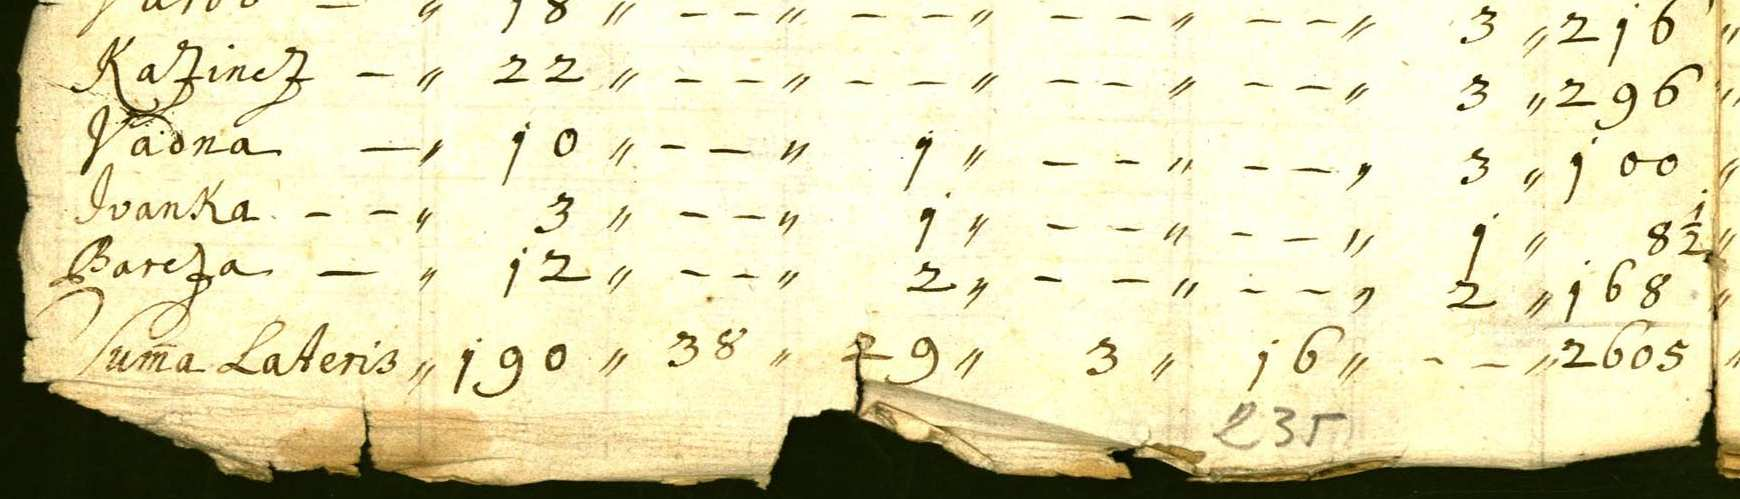 — „ 18 „ – – „ – – „ – – „ – – „ 3 „ 216 „
Kazincz – „ 22 „ – – „ – – „ – – „ – – „ 3 „ 296 „
Vadna — „ 10 „ – – „ 1 „ – – „ – – , 3 „ 100 „
Ivanka – – „ 3 „ – – „ 1 „ – – „ – – „ 1 „ 8 1/2 „
Barcza — „ 12 „ – – „ 2 „ – – „ – – , 2 „ 168 „
Sum̄a Lateris „ 190 „ 38 „ 29 „ 3 „ 16 „ – – „ 2605 „
235